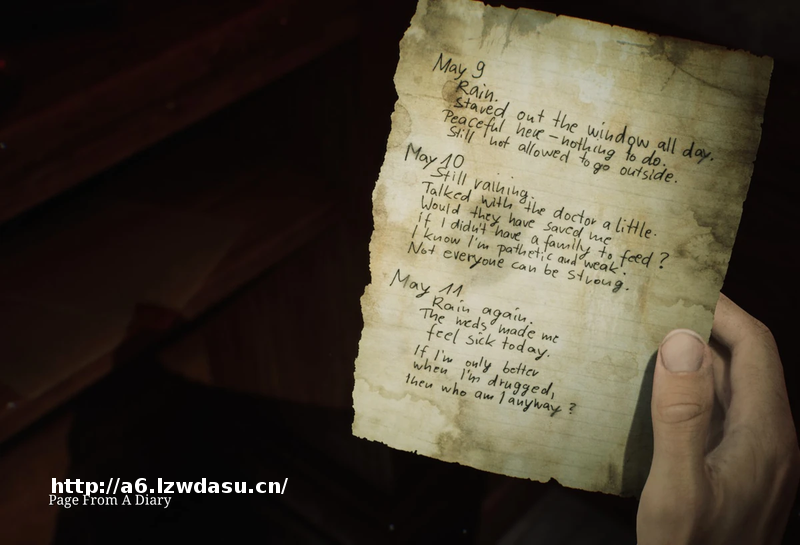 May 9
Rain.
Stared out the window all day.
Peaceful here - nothing to do.
Still not allowed to go outside.
May 10
Still raining.
Talked with the doctor a little.
Would they have saved me
if I didn't have a family to feed?
I know I'm pathetic and weak.
Not everyone can be strong.
May 11
Rain again.
The meds made me
feel sick today.
If I'm only better
when I'm drugged,
then who am I anyway?
http://a6.lzwdasu.cn/
Page From A Diary